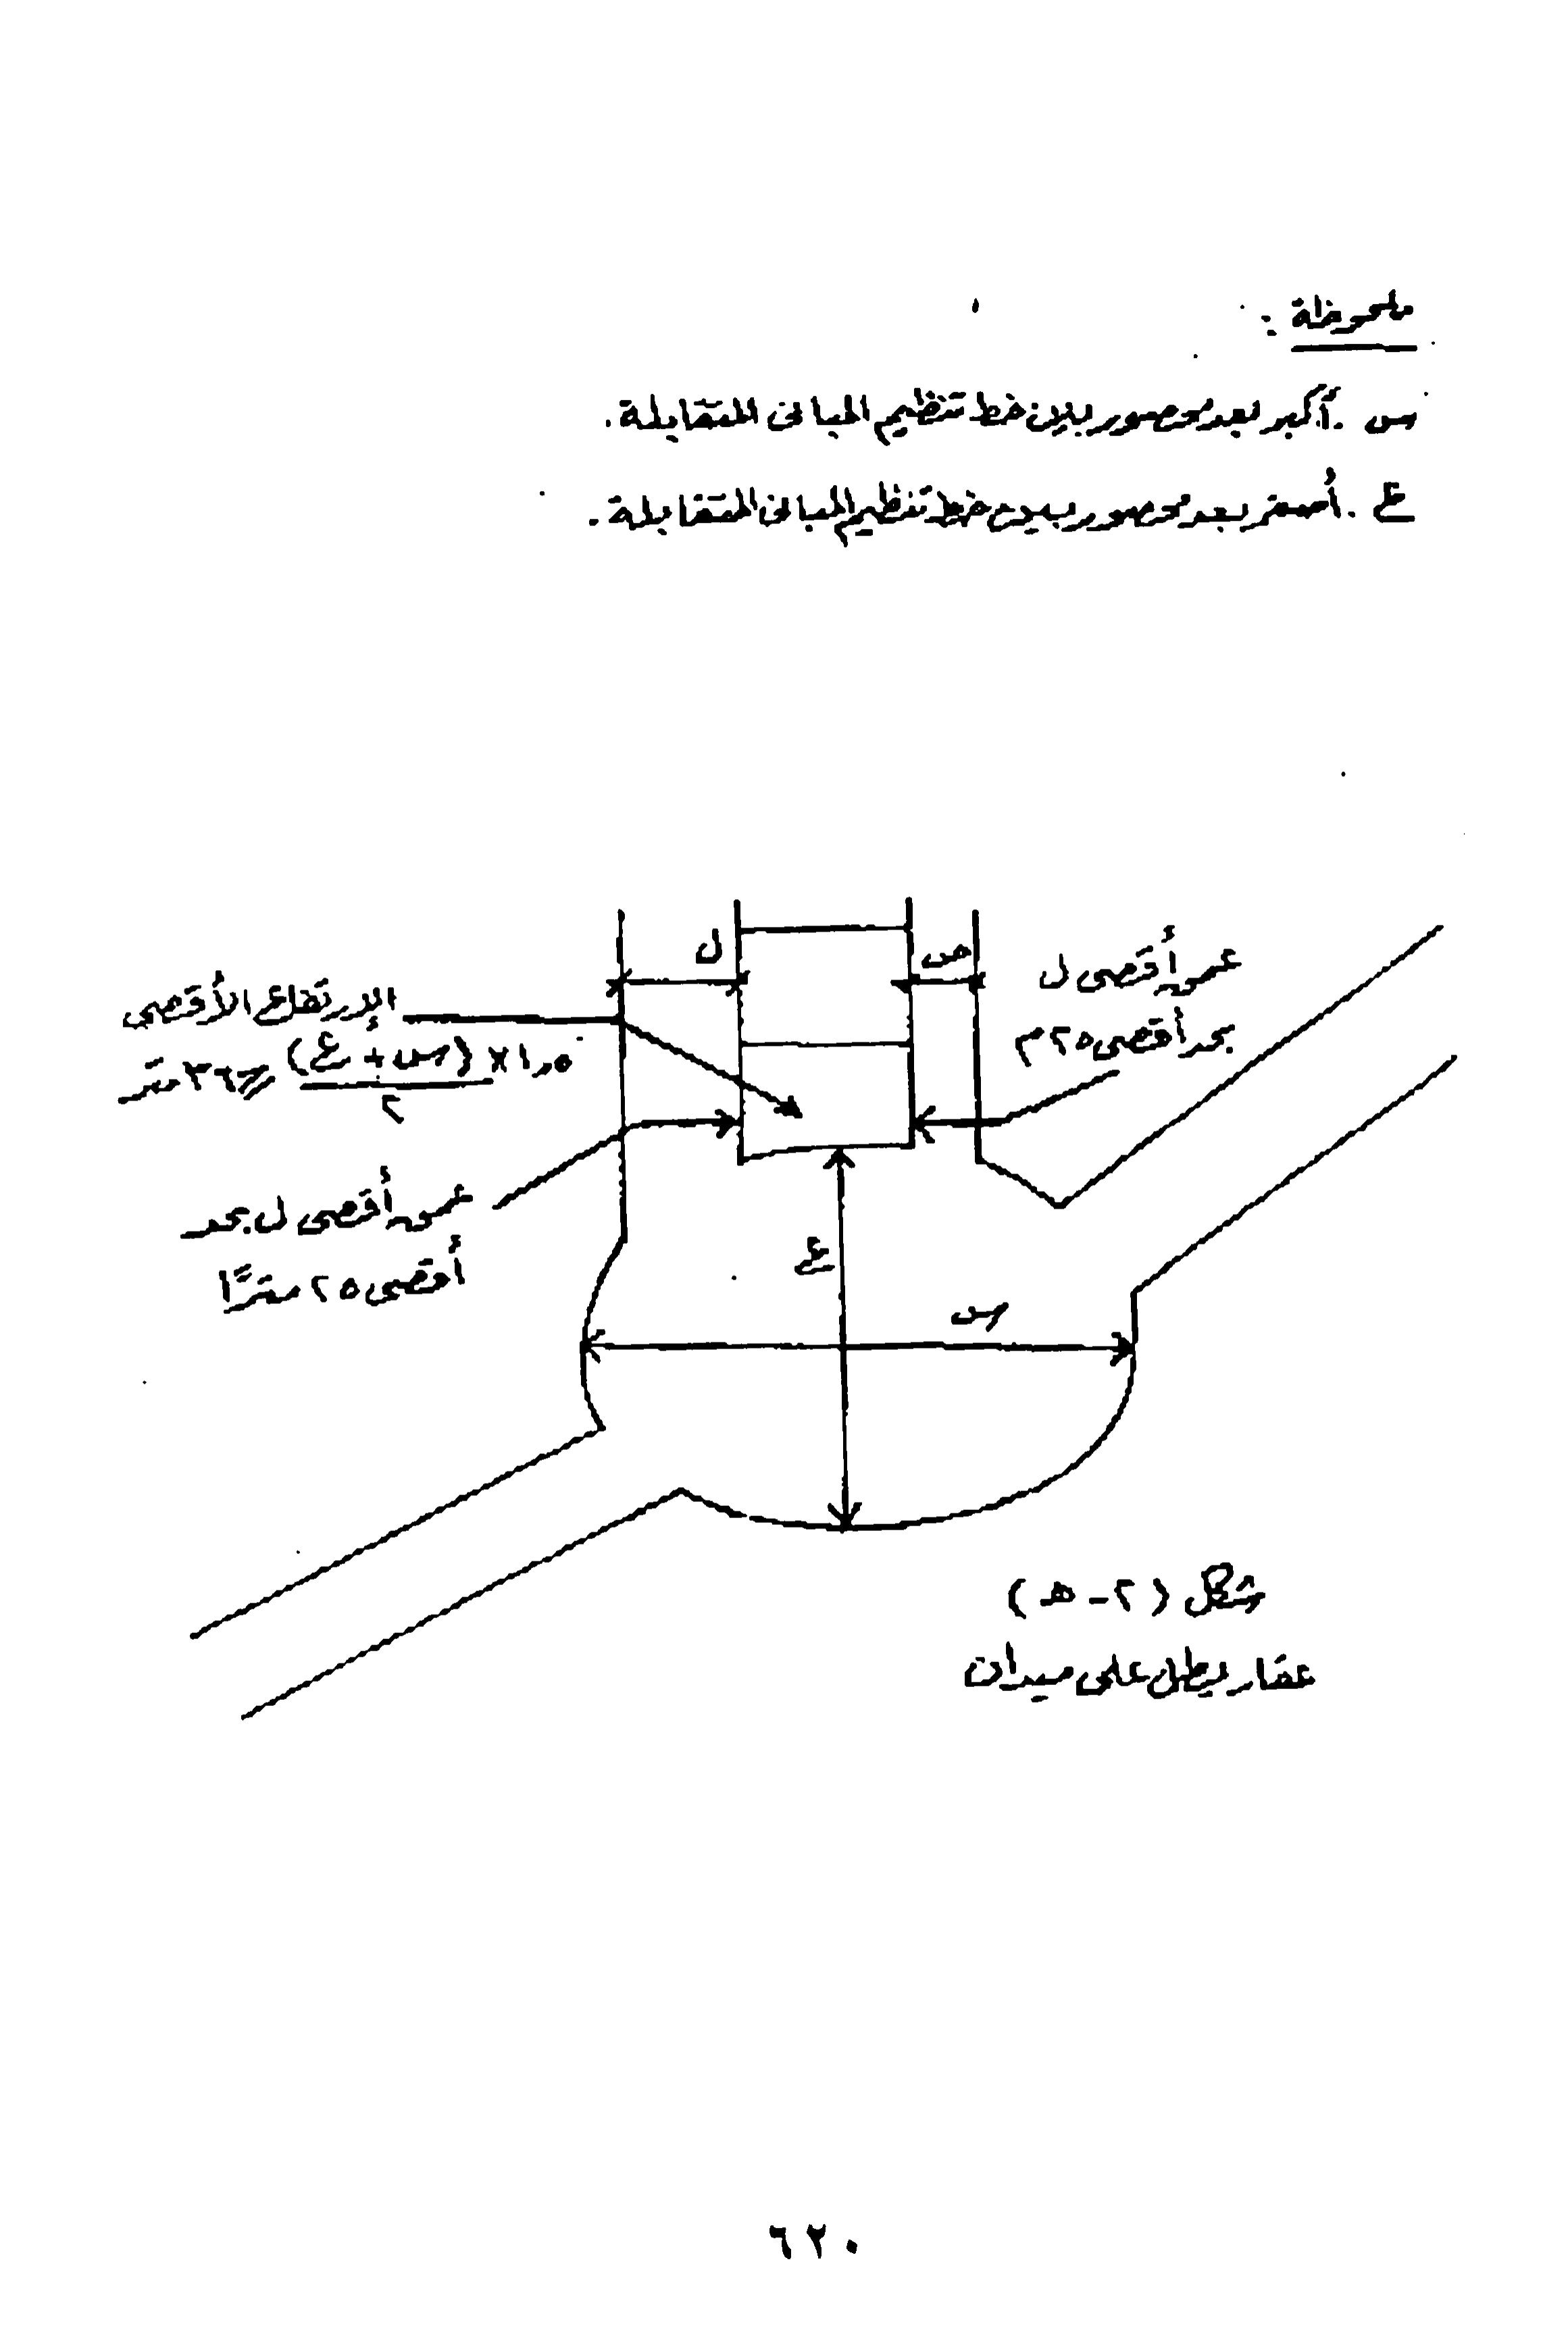 ملحوظة :
س . أكبر بعد محصور بين خط تنظيم المبانى المتقابلة .
ع . أصغر بعد محصور بين خط تنظيم المبانى المتقابلة .
ل
ص
عمق أقصى ل
بحد أقصى ٢٥ م
الإرتفاع الأقصى
١,٥ × (س + ع)
٢
٣٦ متر
عمق أقصى ل بحد
أقصى ٢٥ مترًا
ع
س
شكل (٢ - هـ)
عقار يطل على ميدان
٦٢٠